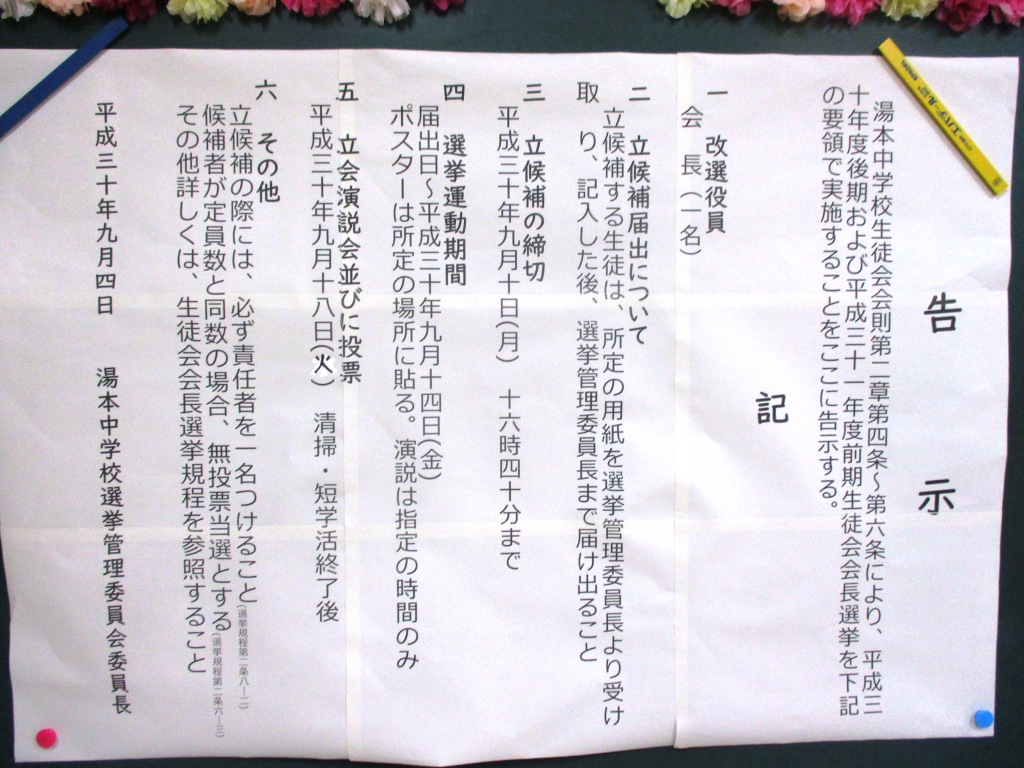 告示
湯本中学校生徒会会則第二章第四条～第六条により、平成三
十年度後期および平成三十一年度前期生徒会会長選挙を下記
の要領で実施することをここに告示する。
記
一　改選役員
会　長（一名）
二　立候補届出について
立候補する生徒は、所定の用紙を選挙管理委員長より受け
取り、記入した後、選挙管理委員長まで届け出ること
三　立候補の締切
平成三十年九月十日(月)　十六時四十分まで
四　選挙運動期間
届出日～平成三十年九月十四日(金)
ポスターは所定の場所に貼る。演説は指定の時間のみ
五　立会演説会並びに投票
平成三十年九月十八日(火)　清掃・短学活終了後
六　その他
立候補の際には、必ず責任者を一名つけること(選挙規程第二条八―二)
候補者が定員数と同数の場合、無投票当選とする(選挙規程第二条六―三)
その他詳しくは、生徒会会長選挙規程を参照すること
平成三十年九月四日　湯本中学校選挙管理委員会委員長